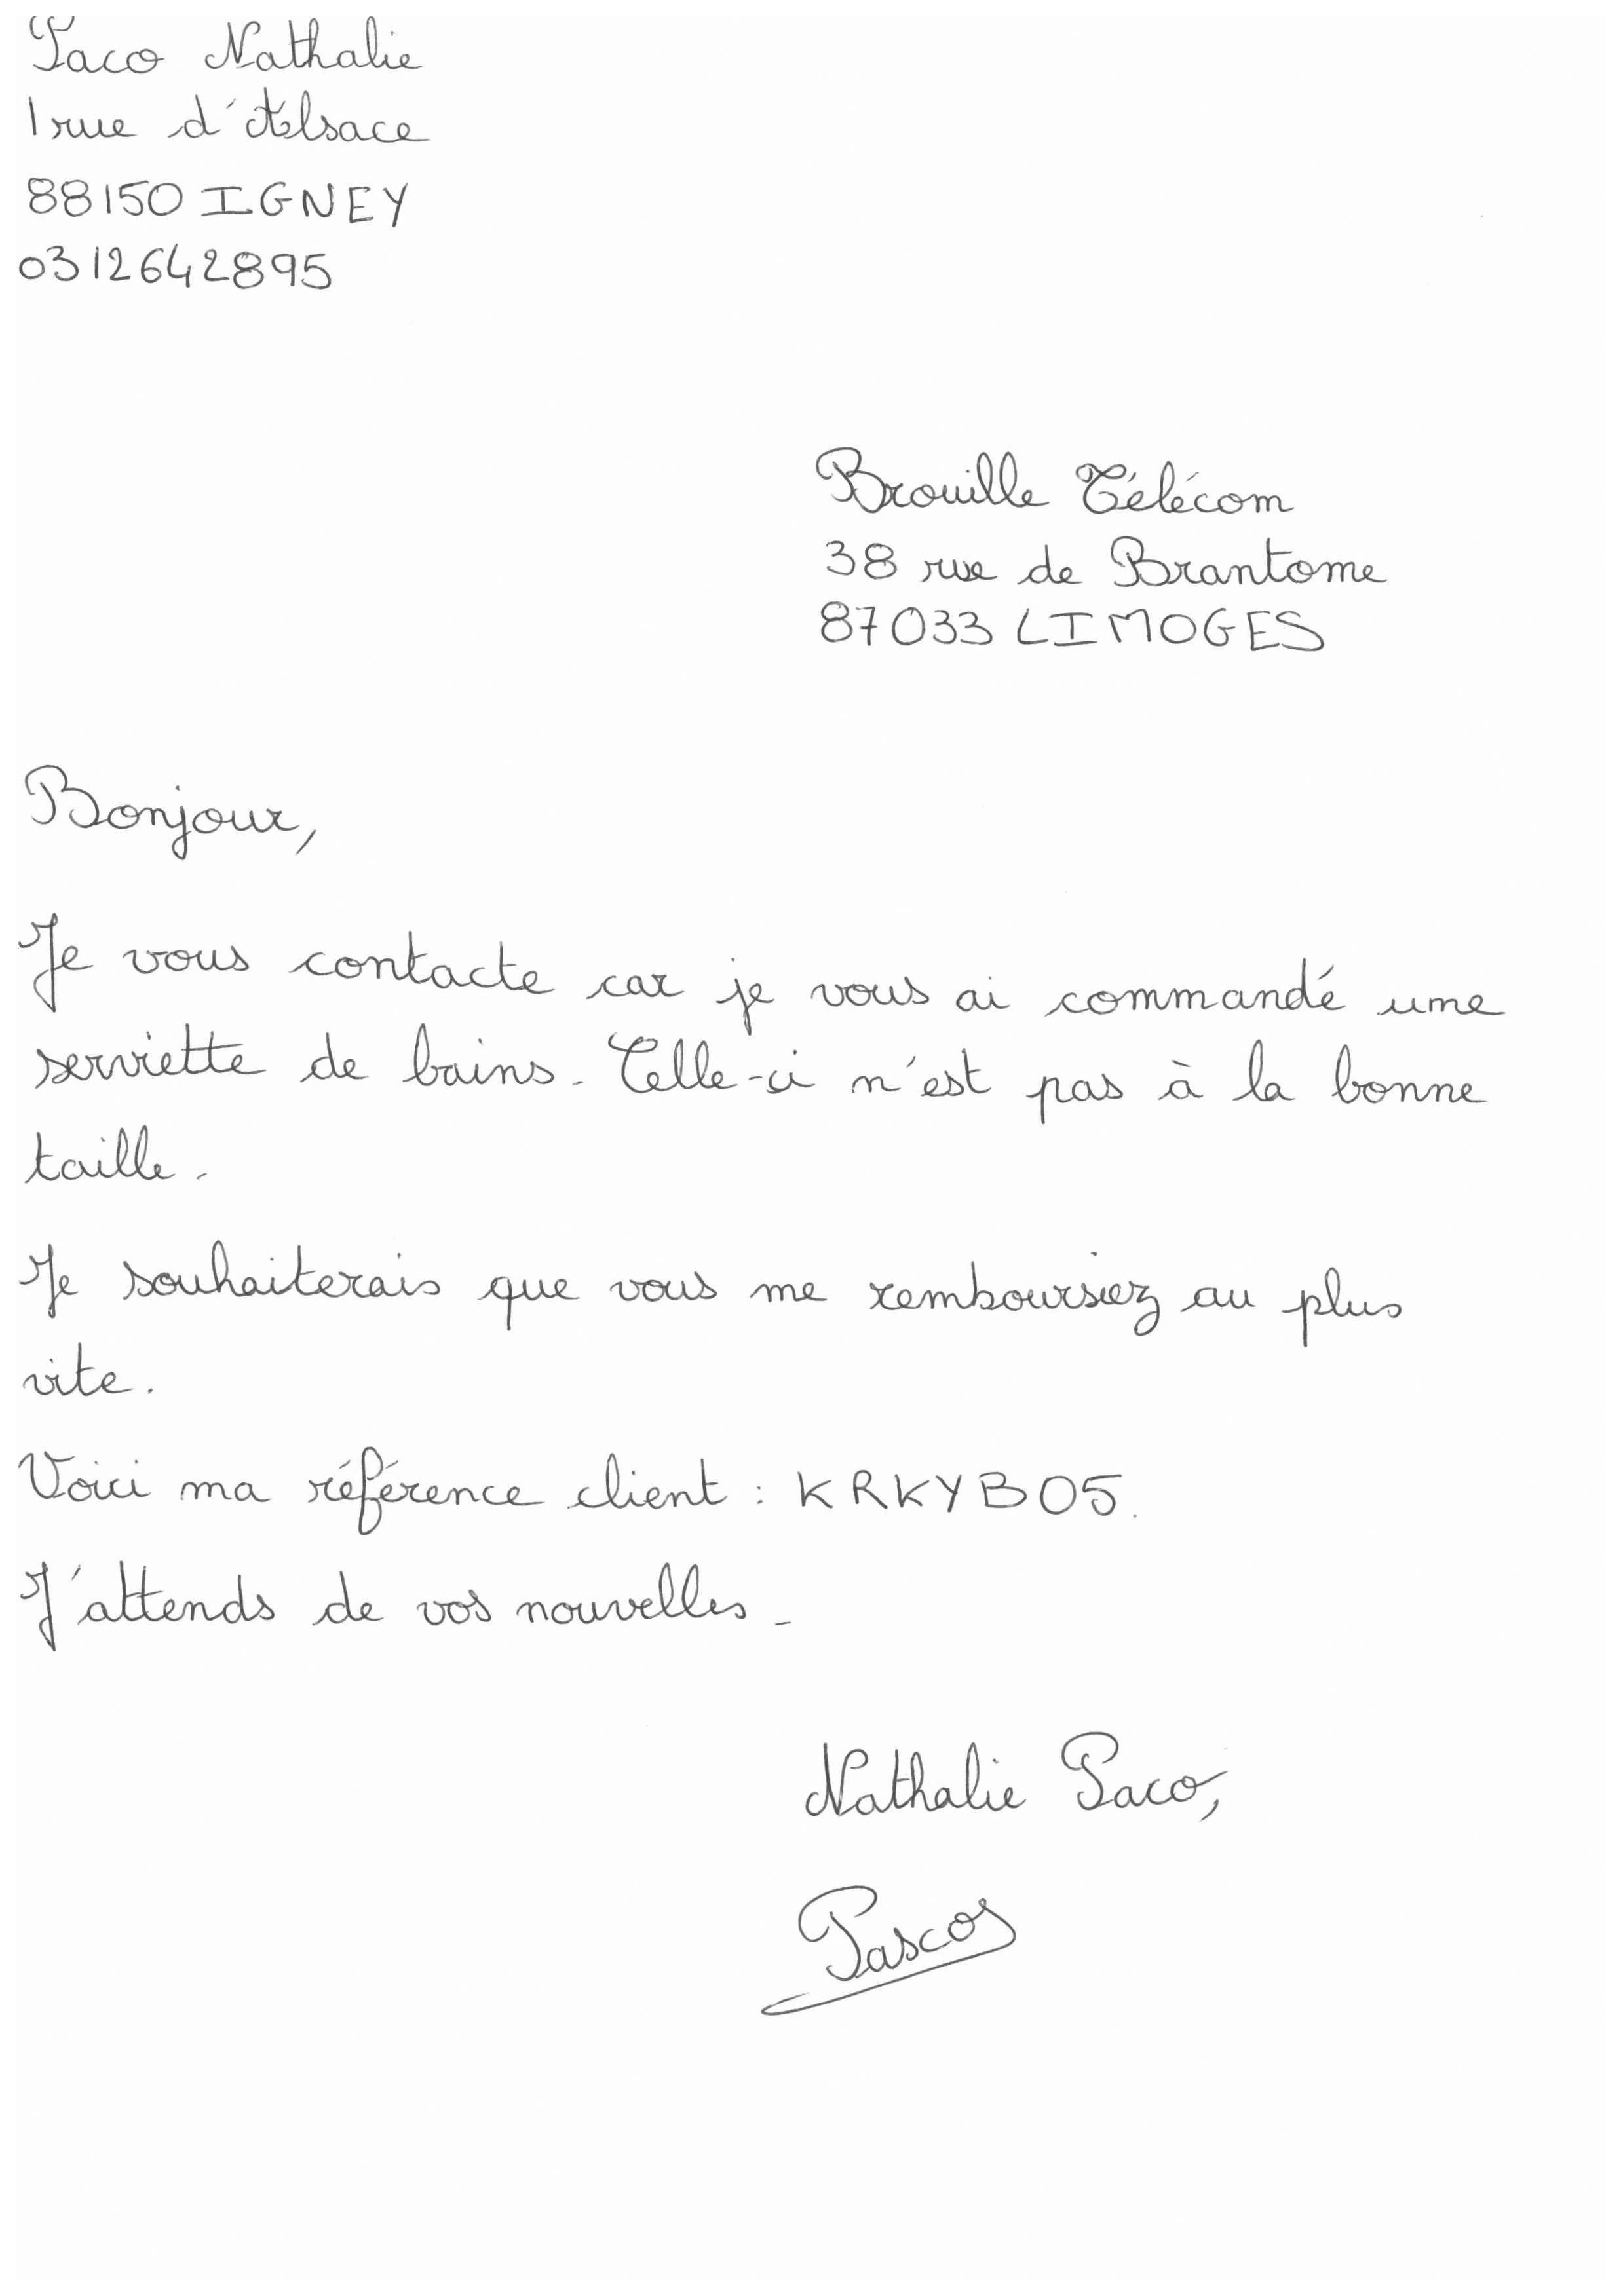 Paco Nathalie
1 rue d'Alsace
88150 IGNEY
0312642895
Brouille Télécom
38 rue de Brantome
87033 LIMOGES
Bonjour,
Je vous contacte car je vous ai commandé une
serviette de bains. Celle-ci n'est pas à la bonne
taille.
Je souhaiterais que vous me remboursiez au plus
vite.
Voici ma référence client : KRKYB05.
J'attends de vos nouvelles.
Nathalie Paco,
Pascos